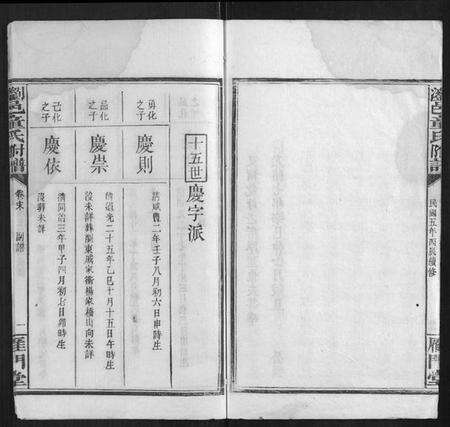 瀏邑童氏附譜
民國五年丙辰續修
雁門堂
十五世
慶字派
勇化之子
慶則
清咸豐二年壬子八月初六日申時生
品化之子
慶崇
清道光二十五年乙巳十月十五日午時生
沒未詳葬瀏東戚家衝楊家橋山向未詳
己化之子
慶依
清同治三年甲子四月初七日
時生
沒葬未詳
瀏邑童氏附譜
卷末
副譜
一
雁門堂